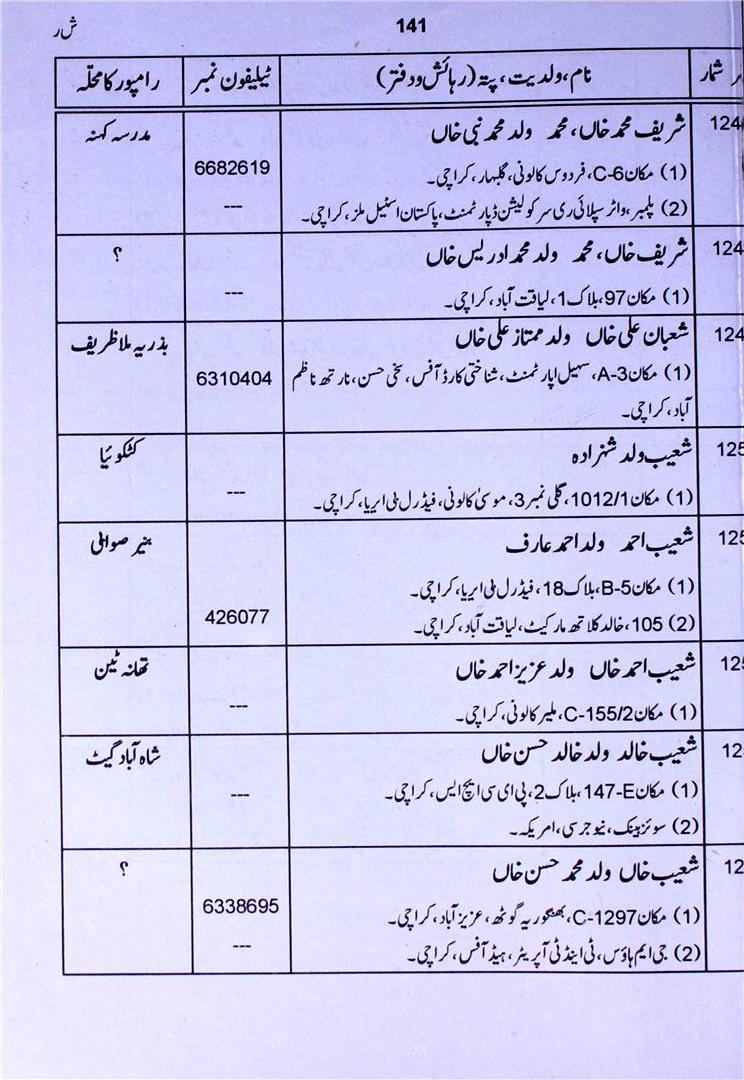 141
ش ر
ر شمار
نام، ولدیت، پتہ (رہائش و دفتر)
ٹیلیفون نمبر
رامپور کا محلّہ
124
شریف محمد خاں، محمد ولد محمد نبی خاں
مدرسہ کہنہ
(1) مکان C-6، فردوس کالونی، گلبہار، کراچی۔
6682619
(2) پلمبر، واٹر سپلائی ری سرکولیشن ڈپارٹمنٹ، پاکستان اسٹیل ملز، کراچی۔
---
124
شریف خاں، محمد ولد محمد ادریس خاں
؟
(1) مکان 97، بلاک 1، لیاقت آباد، کراچی۔
---
124
شعبان علی خاں ولد ممتاز علی خاں
بذریہ ملا ظریف
(1) مکان A-3، سہیل اپارٹمنٹ، شناختی کارڈ آفس، سخی حسن، نارتھ ناظم
6310404
آباد، کراچی۔
125
شعیب ولد شہزادہ
کٹکوئیا
(1) مکان 1012/1، گلی نمبر 3، موسیٰ کالونی، فیڈرل بی ایریا، کراچی۔
---
125
شعیب احمد ولد احمد عارف
بنیر صواٹی
(1) مکان B-5، بلاک 18، فیڈرل بی ایریا، کراچی۔
(2) 105، خالد کلاتھ مارکیٹ، لیاقت آباد، کراچی۔
426077
125
شعیب احمد خاں ولد عزیز احمد خاں
تھانہ ٹین
(1) مکان C-155/2، ملیر کالونی، کراچی۔
---
12
شعیب خالد ولد خالد حسن خاں
شاہ آباد گیٹ
(1) مکان 147-E، بلاک 2، پی ای سی ایچ ایس، کراچی۔
---
(2) سوئز بینک، نیو جرسی، امریکہ۔
12
شعیب خاں ولد محمد حسن خاں
؟
(1) مکان C-1297، بھنگوریہ گوٹھ، عزیز آباد، کراچی۔
6338695
(2) جی ایم ہاؤس، ٹی اینڈ ٹی آپریٹر، ہیڈ آفس، کراچی۔
---